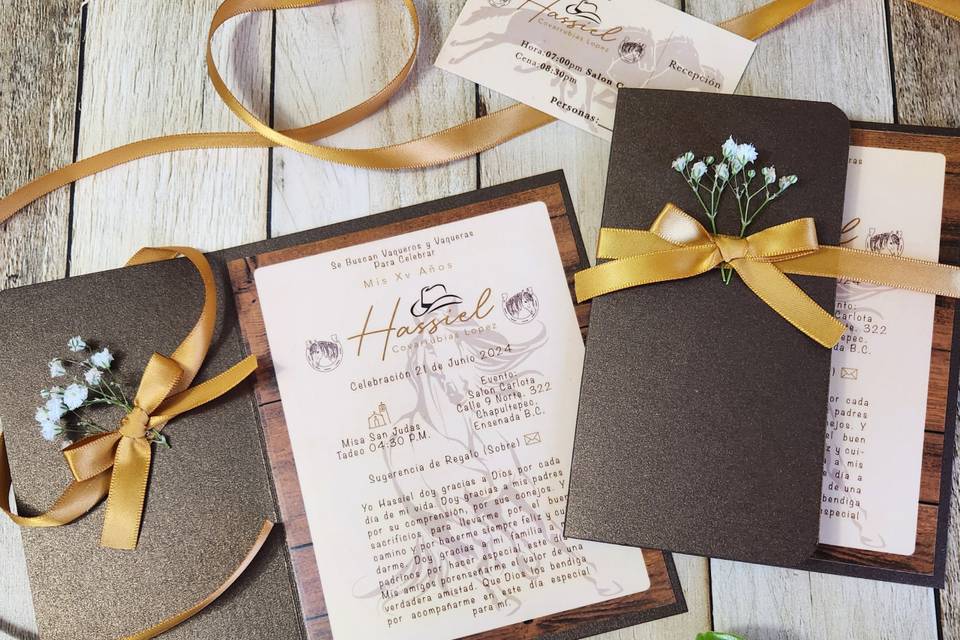 Hassiel
Covarrubias Lopez
Hora:07:00pm Salon C
Cena:08:30pm
Recepción
Personas:
Se Buscan Vaqueros y Vaqueras
Para Celebrar
Mis Xv Años
Hassiel
Covarrubias Lopez
Celebración 21 de Junio 2024
Misa San Judas
Tadeo 04:30 P.M.
Evento:
Salon Carlota
Calle 9 Norte. 322
Chapultepec.
Ensenada B.C.
Sugerencia de Regalo (Sobre)
Yo Hassiel doy gracias a Dios por cada
dia de mi vida. Doy gracias a mis padres
por su comprensión, por sus consejos. Y
sacrificios para llevarme por el buen
camino y por hacerme siempre feliz y cui-
darme. Doy gracias a mi familia y a mis
padrinos por hacer especial este dia a
Mis amigos por enseñarme el valor de una
verdadera amistad. Que Dios los bendiga
por acompañarme en este dia especial
para mi.
ueras
l
ez
evento:
Carlota
rte. 322
epec.
a B.C.
)
or cada
padres
ejos. Y
el buen
z y cui-
a mis
dia a
de una
bendiga
special